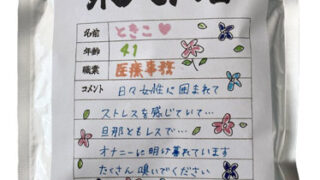 名前 ときこ♡
年齢 41
職業 医療事務
コメント 日々女性に囲まれて
ストレスを感じていて…
旦那ともレスで…
オナニーに明け暮れています
たくさん嗅いでください